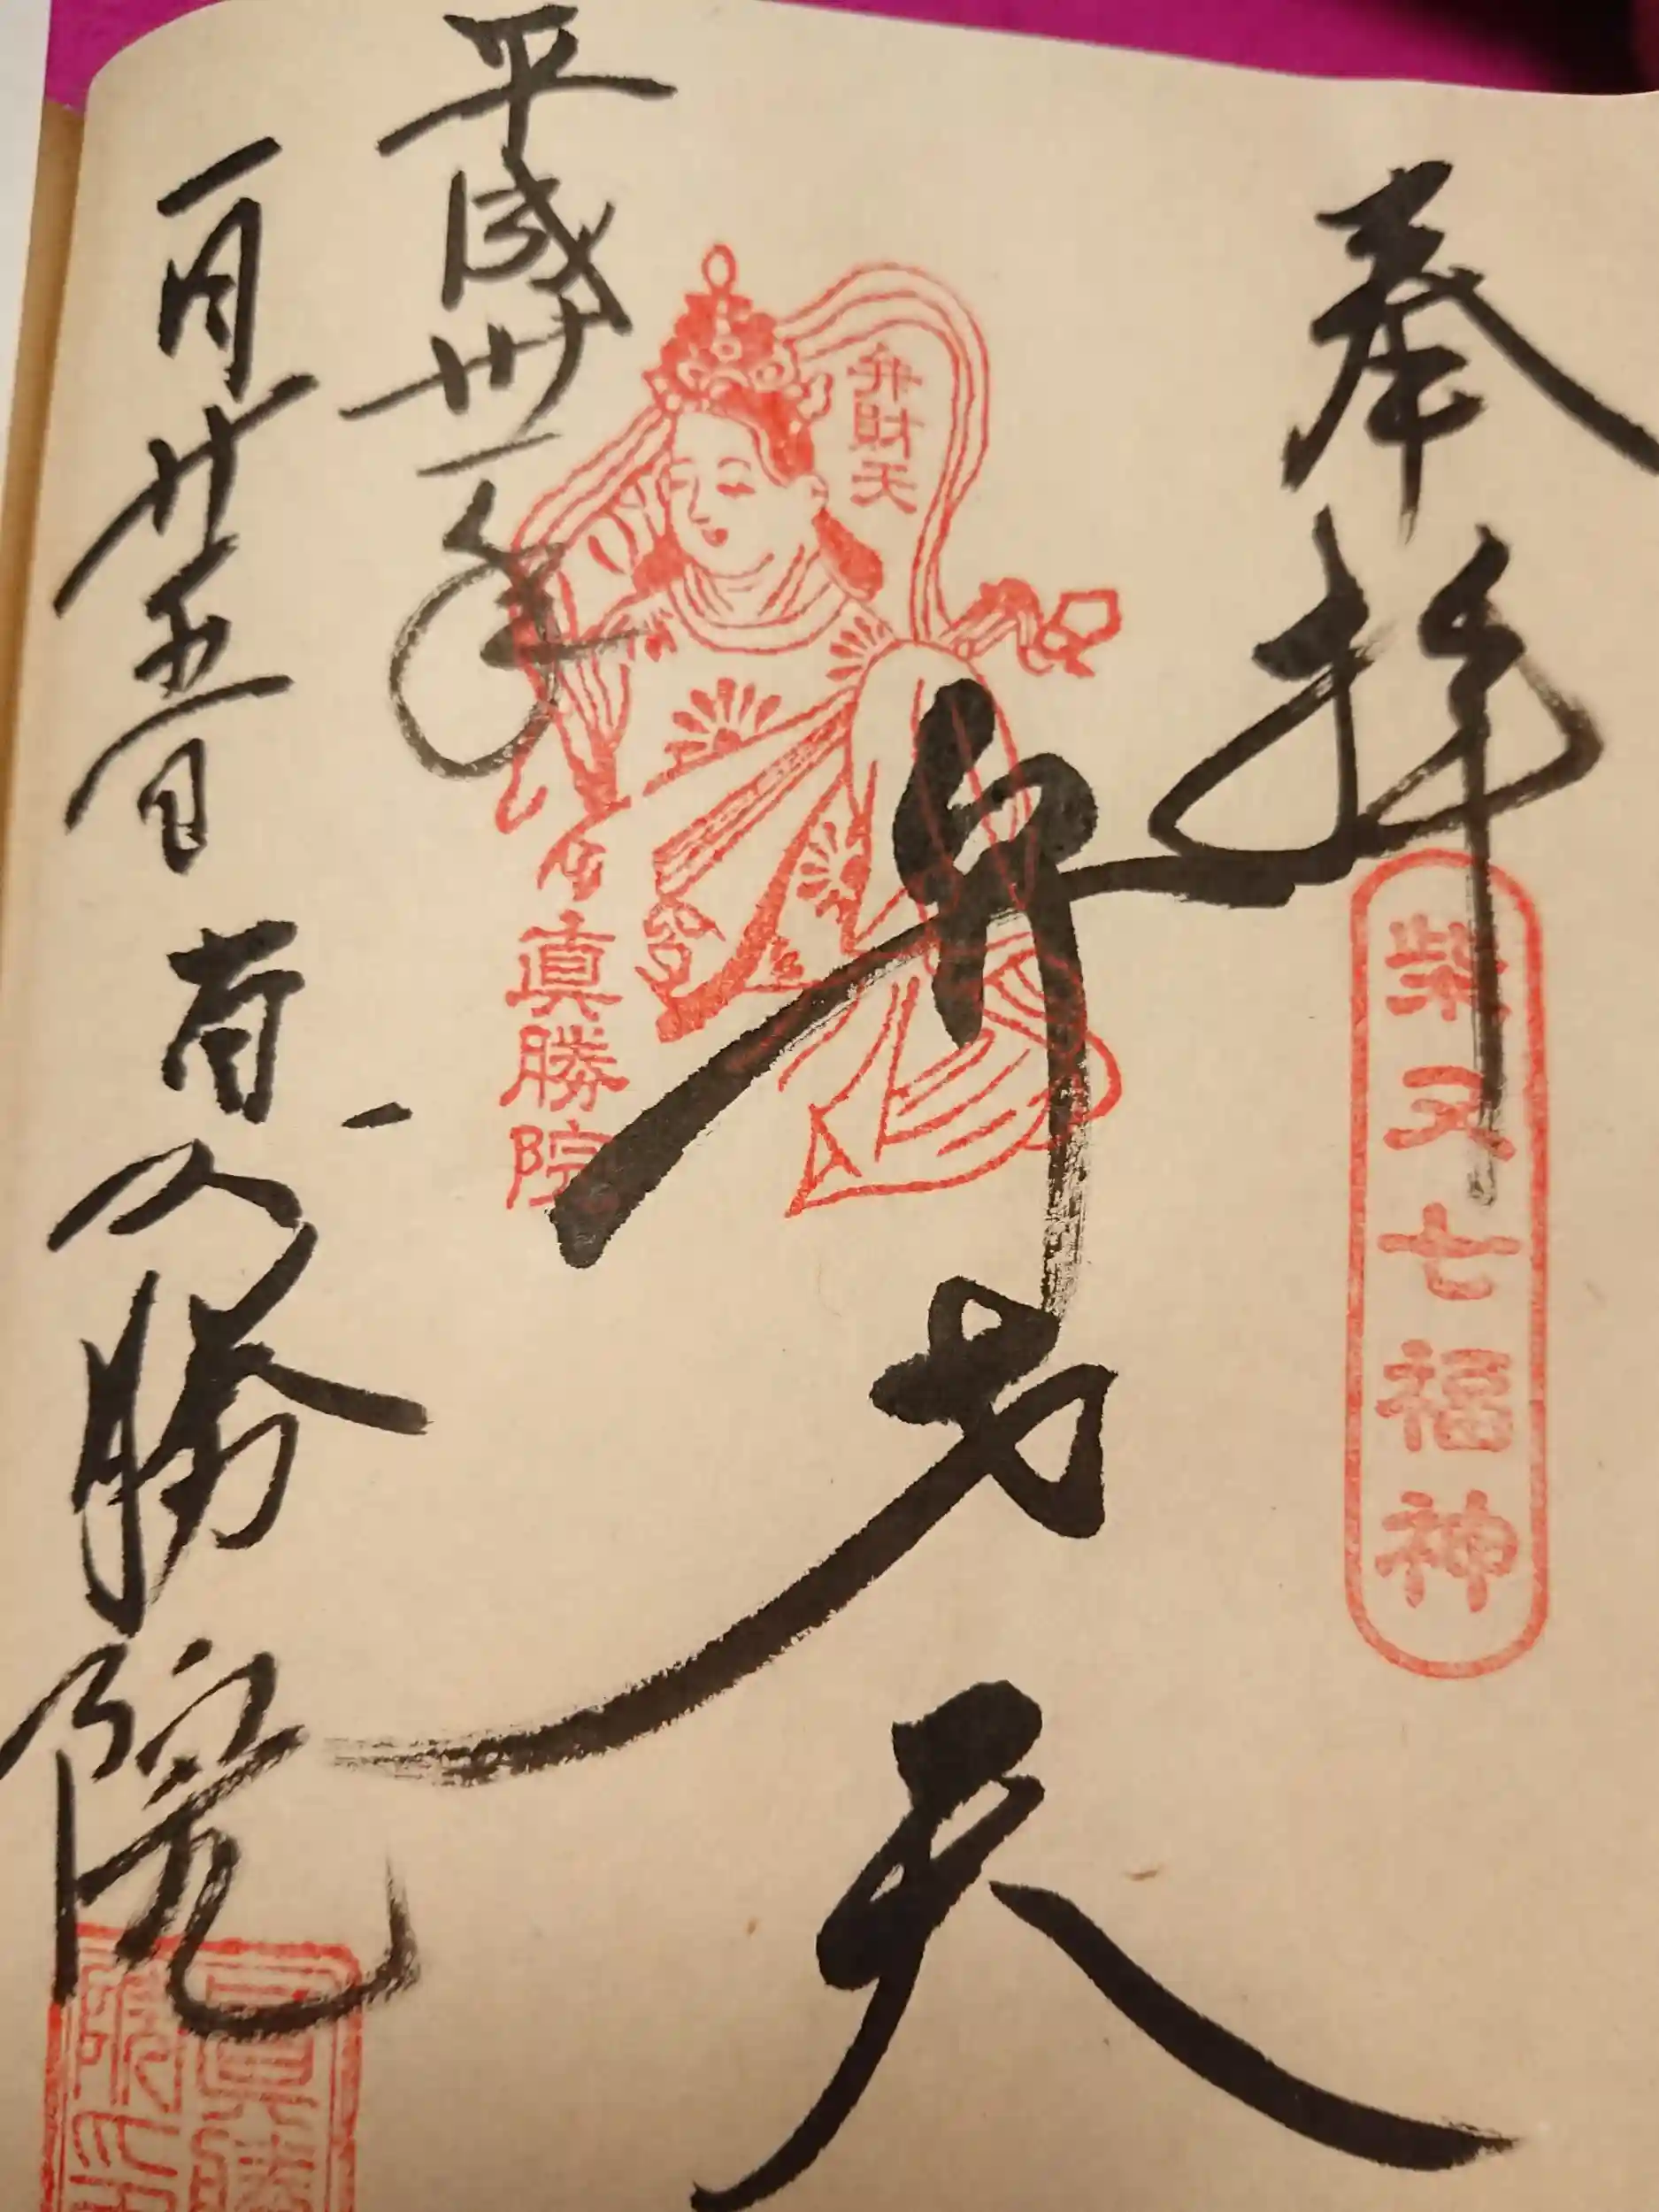 奉拝
柴又七福神
弁才天
弁財天
眞勝院
平成卅一年
一月廿五日
眞勝院